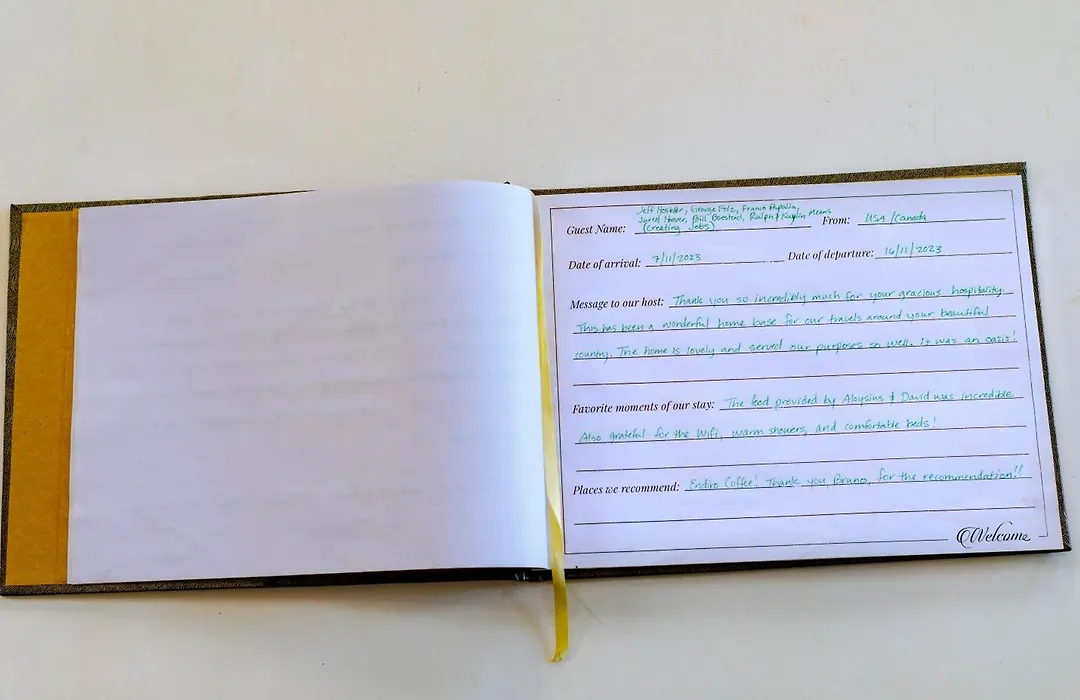 Jeff Hostetter, George Petz, Franco Papalia,
Jared Hoover, Bill Boesterd, Ralph & Kaylin Means
Guest Name: (Creating Jobs) From: USA/Canada
Date of arrival: 7/11/2023 Date of departure: 16/11/2023
Message to our host: Thank you so incredibly much for your gracious hospitality.
This has been a wonderful home base for our travels around your beautiful
country. The home is lovely and served our purposes so well. It was an oasis!
Favorite moments of our stay: The food provided by Aloysius & David was incredible.
Also grateful for the Wifi, warm showers, and comfortable beds!
Places we recommend: Endiro Coffee! Thank you, Bruno, for the recommendation!!
Welcome